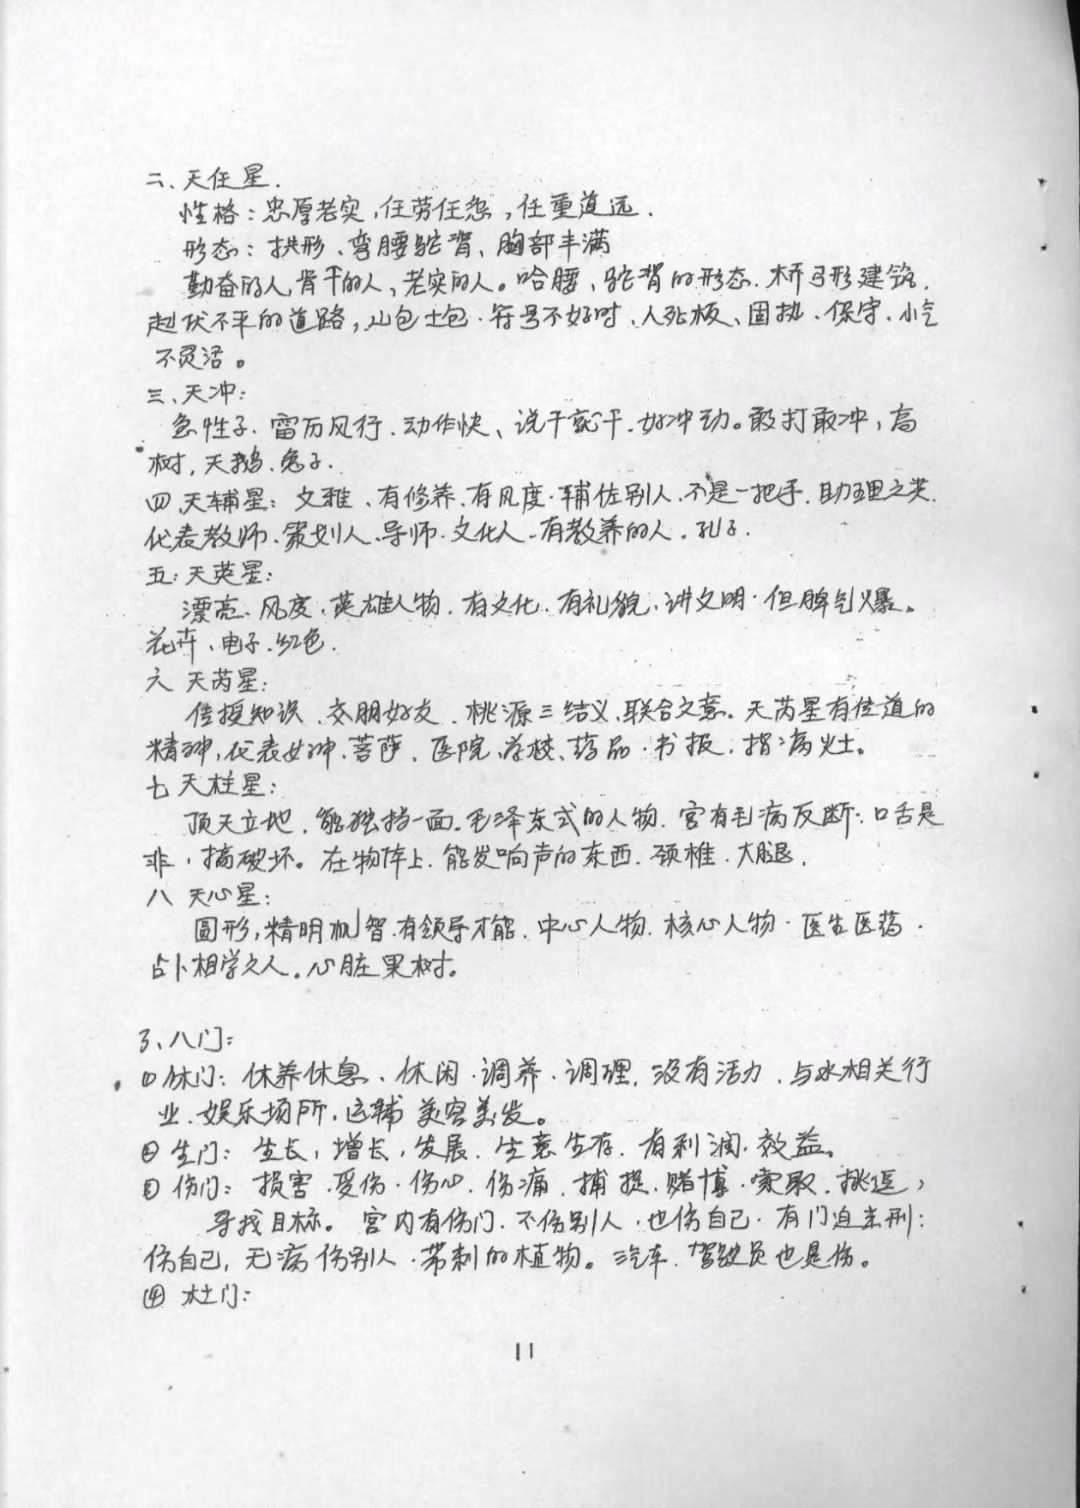 二、天任星.
性格：忠厚老实,任劳任怨,任重道远.
形态：拱形、弯腰驼背、胸部丰满
勤奋的人,肯干的人,老实的人。哈腰、驼背的形态.木桥弓形建筑.
起伏不平的道路,山包土包.符号不好时、人死板、固执、保守、小气
不灵活。
三、天冲：
急性子.雷厉风行.动作快、说干就干.好冲动。敢打敢冲,高
树,天鹅.兔子.
四 天辅星：文雅、有修养.有风度.辅佐别人.不是一把手.助理之类.
代表教师、策划人、导师.文化人.有教养的人.孔子.
五:天英星：
漂亮.风度、英雄人物.有文化.有礼貌、讲文明.但脾气爆。
花卉、电子.红色.
六 天芮星：
传授知识、交朋好友.桃源三结义.联合文意。天芮星有传道的
精神,代表女神.菩萨.医院、学校、药品.书报.指病灶。
七 天柱星：
顶天立地.能独挡一面.毛泽东式的人物.宫有毛病反断:口舌是
非,搞破坏。在物体上.能发响声的东西.颈椎.大腿.
八 天心星：
圆形,精明机智.有领导才能.中心人物.核心人物.医生医药.
占卜相学之人.心脏果树。
3、八门：
① 休门：休养休息、休闲.调养.调理.没有活力.与水相关行
业.娱乐场所.运输 美容美发。
② 生门：生长,增长,发展.生意生存.有利润.效益。
③ 伤门：损害.受伤.伤心.伤痛.捕捉.赌博.索取.挑逗,
寻找目标。宫内有伤门.不伤别人.也伤自己.有门迫击刑:
伤自己,无病伤别人.带刺的植物。汽车.驾驶员也是伤。
④ 杜门：
11